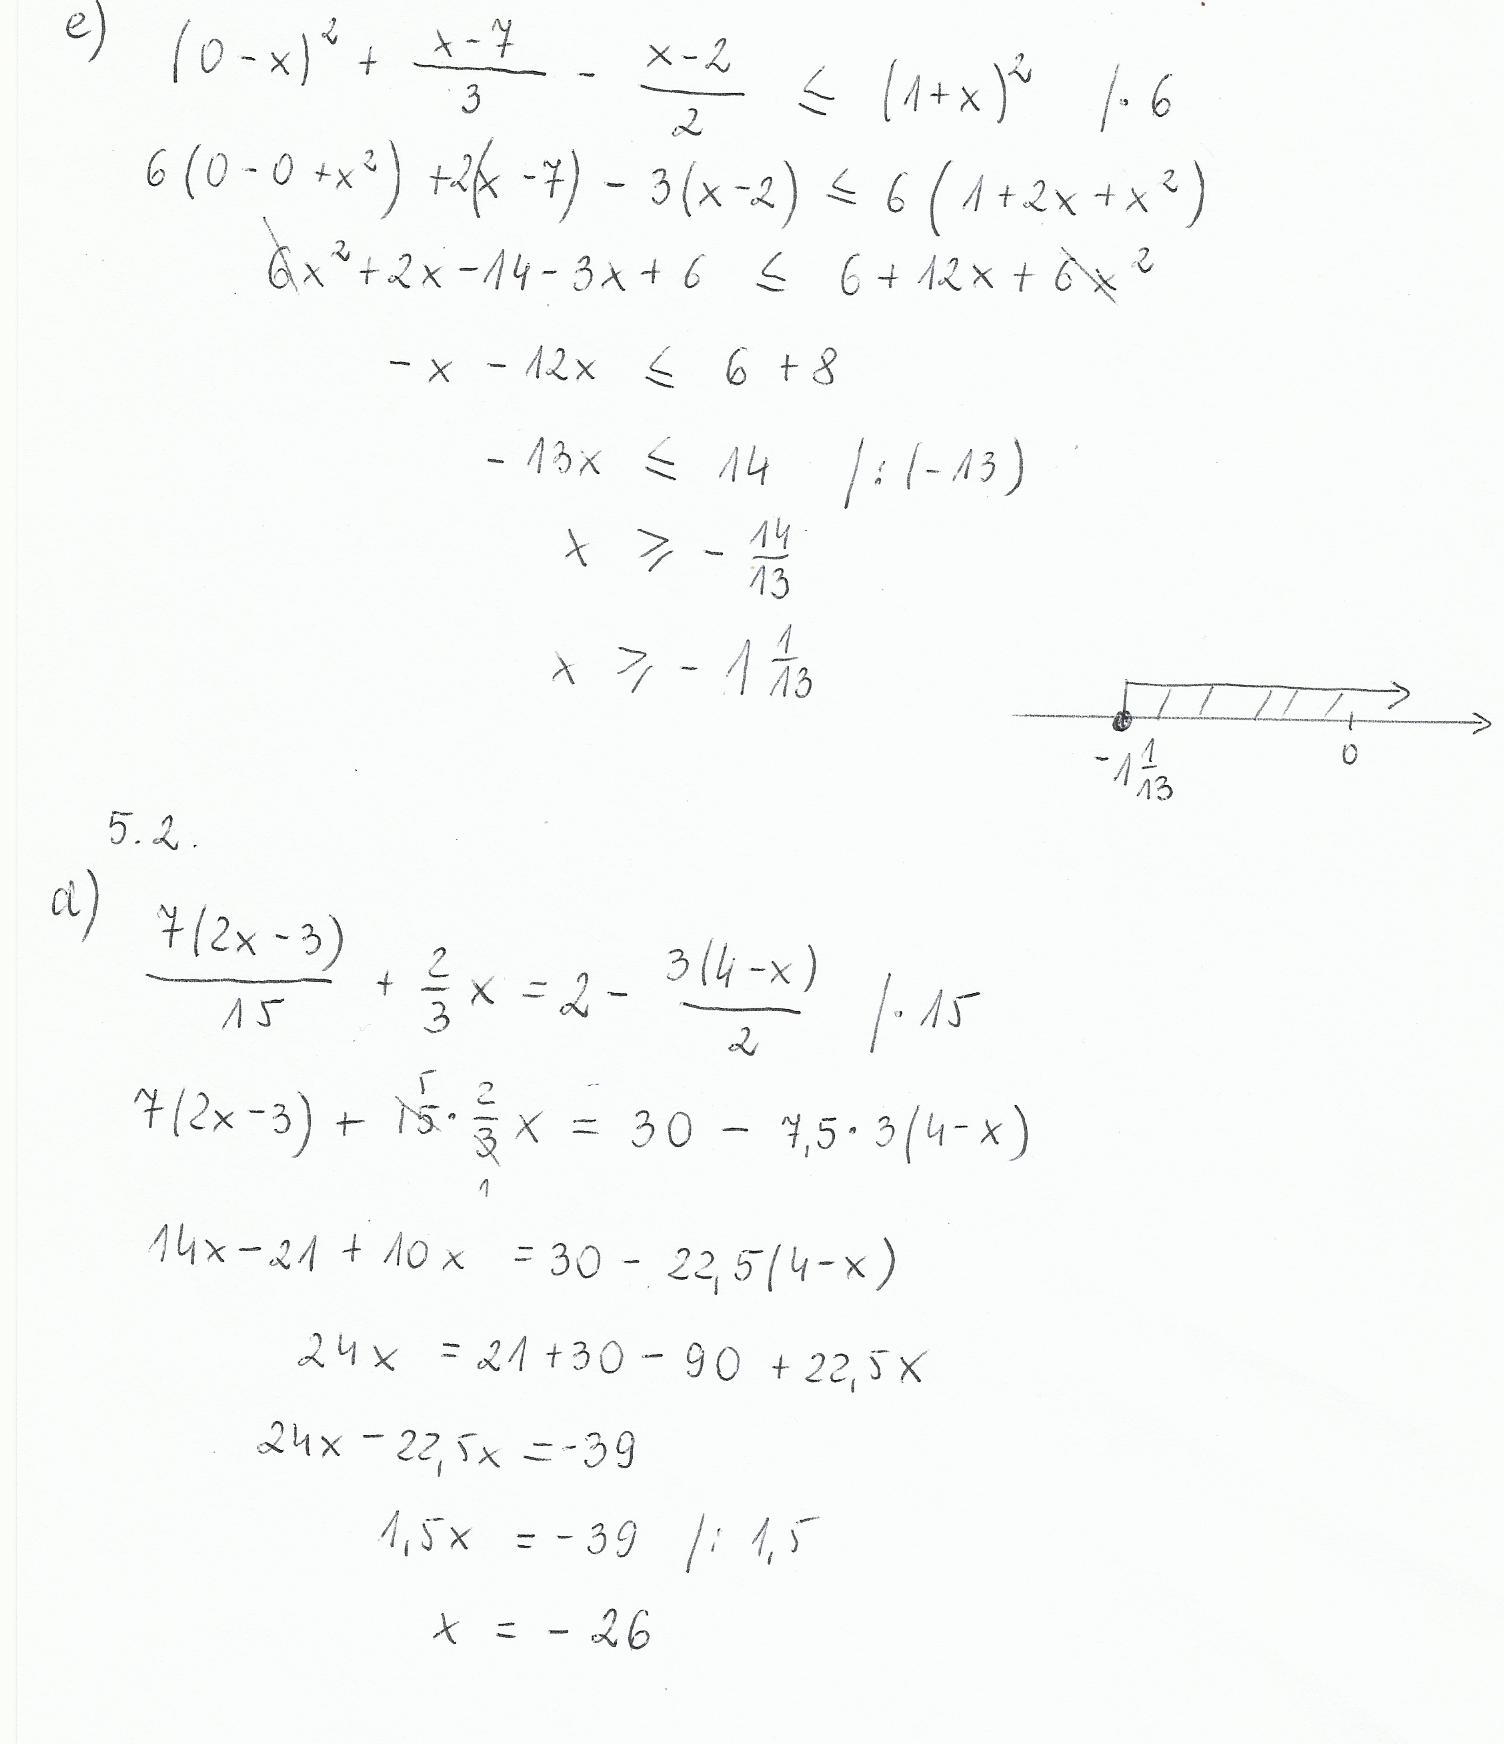 e) (0-x)² + \frac{x-7}{3} - \frac{x-2}{2} ≤ (1+x)² /·6
6(0-0+x²) +2(x-7) - 3(x-2) ≤ 6(1+2x+x²)
6x²+2x-14-3x+6 ≤ 6+12x+6x²
-x -12x ≤ 6+8
-13x ≤ 14 /:(-13)
x ≥ -\frac{14}{13}
x ≥ -1\frac{1}{13}
-1\frac{1}{13} 0
5.2.
d) \frac{7(2x-3)}{15} + \frac{2}{3}x = 2 - \frac{3(4-x)}{2} /·15
7(2x-3) + 15 5 · \frac{2}{3} 1 x = 30 - 7,5·3(4-x)
14x-21+10x = 30 - 22,5(4-x)
24x = 21+30-90+22,5x
24x-22,5x = -39
1,5x = -39 /:1,5
x = -26